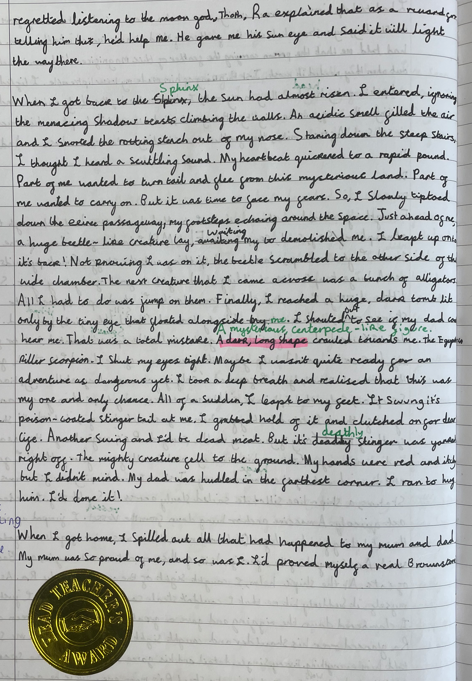 regretted listening to the moon god, Thoth, Ra explained that as a reward for
telling him this, he'd help me. He gave me his Sun eye and said it will light
the way there.
Sphinx
When I got back to the Sphinx, the sun had almost risen. I entered, ignoring
the menacing shadow beasts climbing the walls. An acidic smell filled the air
and I snorted the rotting stench out of my nose. Staring down the steep stairs,
I thought I heard a scuttling sound. My heartbeat quickened to a rapid pound.
Part of me wanted to turn tail and flee from this mysterious land. Part of
me wanted to carry on. But it was time to face my fears. So, I slowly tiptoed
down the eerie passageway, my footsteps echoing around the space. Just ahead of me,
waiting
a huge beetle-like creature lay, awaiting my to be demolished me. I leapt up onto
it's back! Not knowing I was on it, the beetle scrambled to the other side of the
wide chamber. The next creature that I came across was a bunch of alligators.
All I had to do was jump on them. Finally, I reached a huge, dark tomb lit
out
only by the tiny eye that floated alongside by me. I shouted to see if my dad could
A mysterious, centerpede-like figure.
hear me. That was a total mistake. A dark, long shape crawled towards me. The Egyptian
killer scorpion. I shut my eyes tight. Maybe I wasn't quite ready for an
adventure as dangerous yet. I took a deep breath and realised that this was
my one and only chance. All of a sudden, I leapt to my feet. It swung it's
poison-coated stinger tail at me. I grabbed hold of it and clutched on for dear
deathly
life. Another swing and I'd be dead meat. But it's deadly stinger was yanked
right off. The mighty creature fell to the ground. My hands were red and itchy
but I didn't mind. My dad was huddled in the farthest corner. I ran to hug
him. I'd done it!
When I got home, I spilled out all that had happened to my mum and dad.
My mum was so proud of me, and so was I. I'd proved myself a real
HEAD TEACHER'S
AWARD